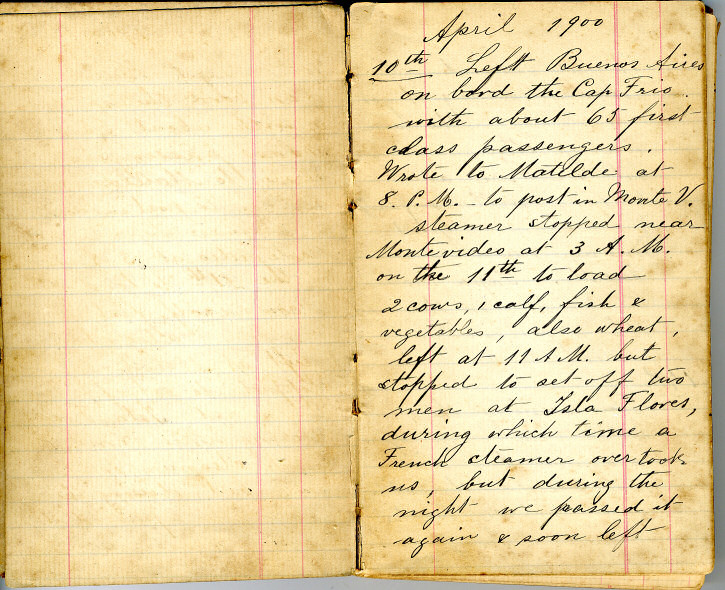 April 1900
10th Left Buenos Aires
on bord the Cap Frio
with about 65 first
class passengers.
Wrote to Matilde at
8. P.M. - to post in Monte V.
steamer stopped near
Montevideo at 3 A.M.
on the 11th to load
2 cows, 1 calf, fish &
vegetables, also wheat,
left at 11 A M. but
stopped to set off two
men at Isla Flores,
during which time a
French steamer overtook
us, but during the
night we passed it
again & soon left